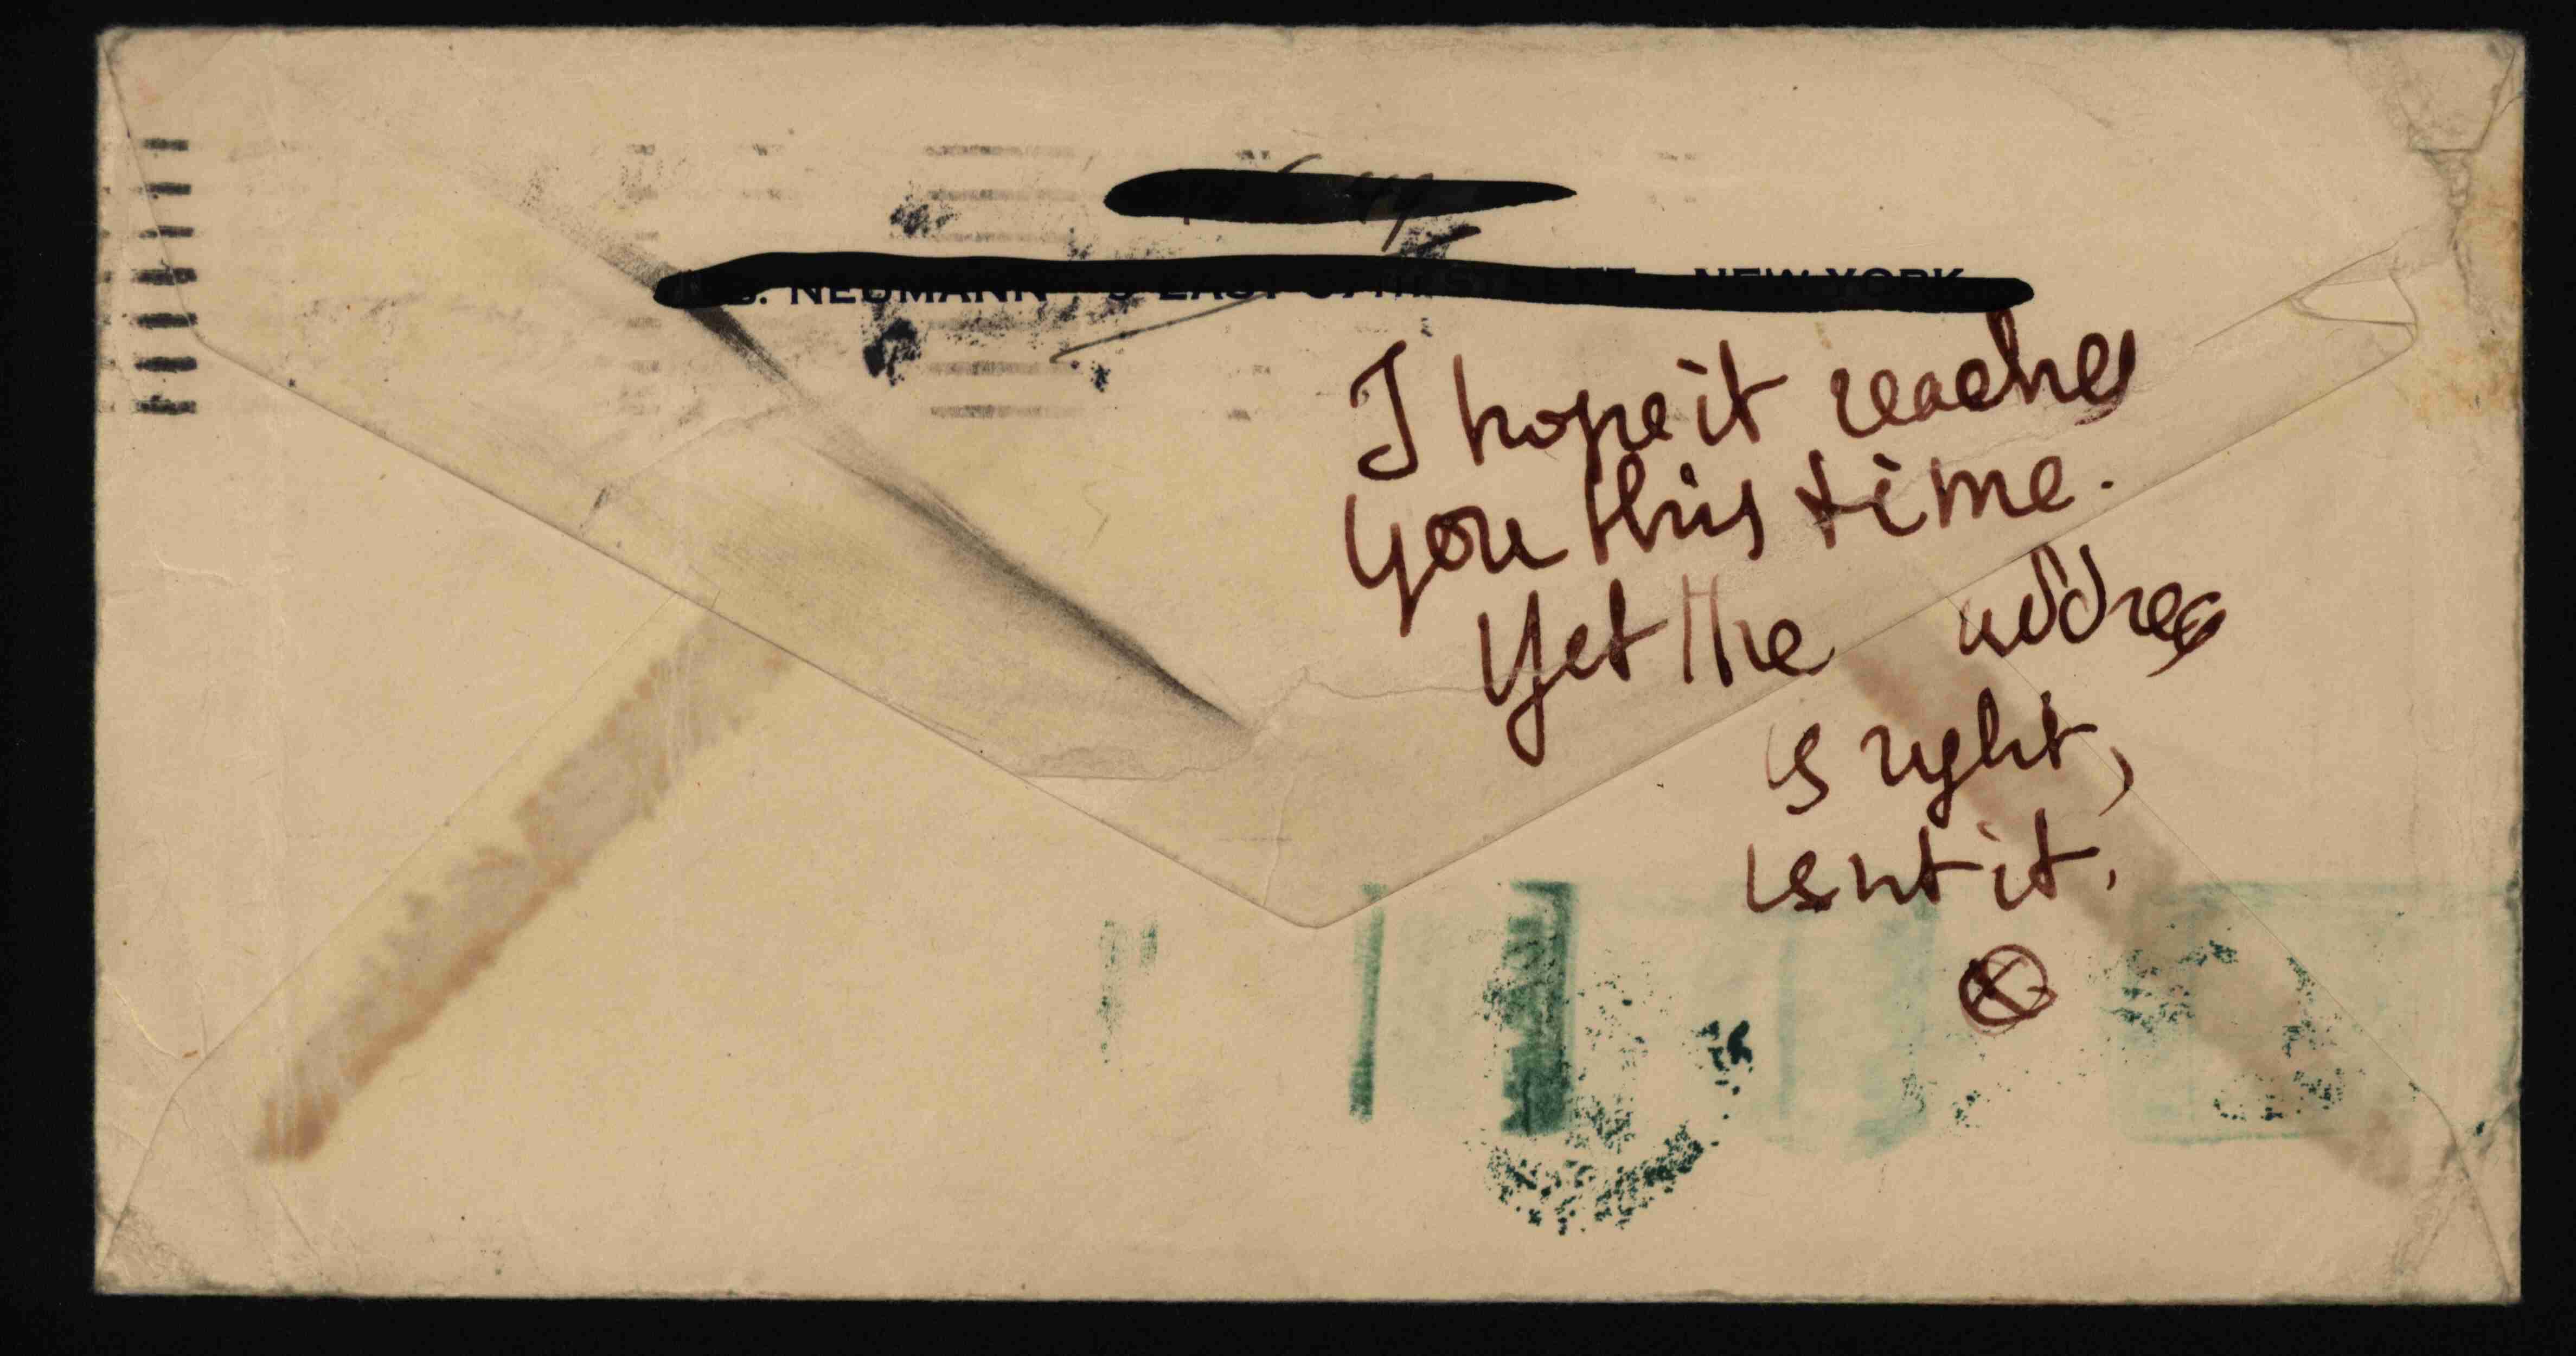 NEUMANN EAST STREET NEW YORK
I hope it reaches
you this time.
Yet the address
is right,
isnt it.